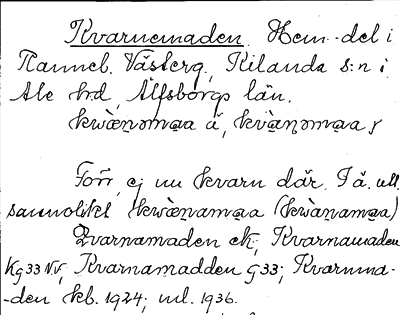 Kvarnemaden. Hem-del i
Ranneb. Våsberg, Kilanda s:n i
Ale hrd, Älfsborgs län.
kwæ̀ṇəma̱a å, kvæ̀ṇəma̱a
Förr, ej nu kvarn där. I ä. utt.
sannolikt kwæ̀ṇama̱a (kwàṇama̱a)
Qvarnamaden ek; Kvarnamaden
Kg33 NV; Kvarnamadden G33; Kvarnma-
-den kb. 1924; ml. 1936.